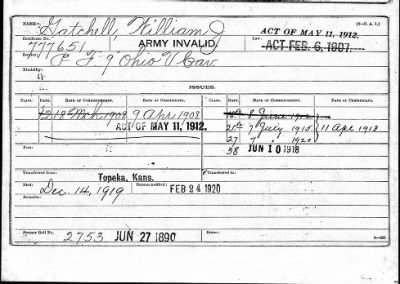 Gatchell, William J.
[3—P. A. I.]
ACT OF MAY 11, 1912.
Certificate No.
777651
ARMY INVALID.
Law:
ACT FEB. 6, 1907.
Service:
"F" 9" Ohio Cav.
Disability:
ISSUES.
CLASS. RATE. DATE OF COMMENCEMENT. DATE OF CERTIFICATE. CLASS. RATE. DATE OF COMMENCEMENT. DATE OF CERTIFICATE.
12 18 Mch 1908 9 Apr 1908
ACT OF MAY 11, 1912.
21 7 July 1915 11 Apr 1913
27 7 " 1920
38 JUN 10 1918
Transferred from
Topeka, Kans.
Died:
Dec. 14, 1919
Bureau notified:
FEB 24 1920
Former Roll No.
2753 JUN 27 1890